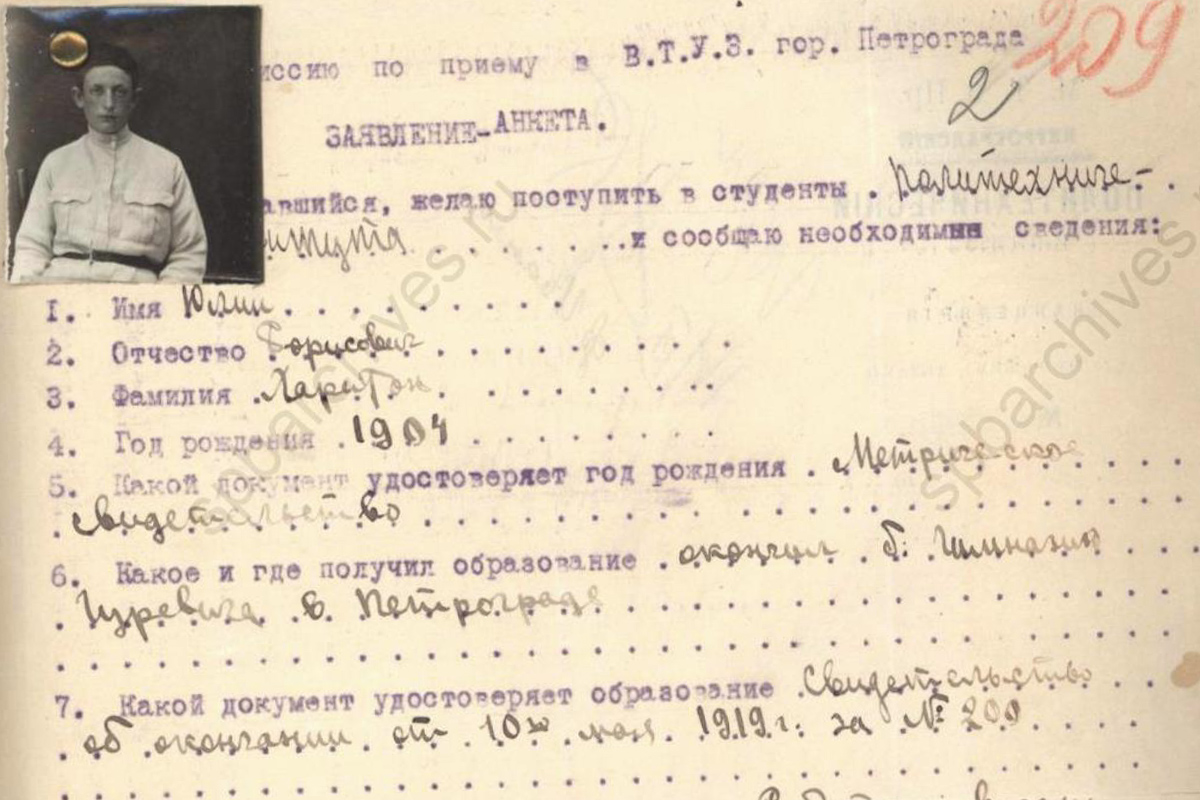 209
иссию по приему в В.Т.У.З. гор. Петрограда
2
ЗАЯВЛЕНИЕ-АНКЕТА.
авшийся, желаю поступить в студенты . Политехниче-
итута . . . . . . . и сообщаю необходимые сведения:
1. Имя Юлий . . . . . . . . .
2. Отчество Борисович . . . . . . . . .
3. Фамилия Харитон . . . . . . . .
4. Год рождения . 1904 . . . . . . . .
5. Какой документ удостоверяет год рождения . Метрическое . . . .
свидетельство . . . . . . . . . . . . . . . . . . . .
6. Какое и где получил образование . окончил . б. Гимназию . . .
. Гуревича в Петрограде . . . . . . . . . . . . . . .
7. Какой документ удостоверяет образование . Свидетельство . .
. об окончании от 10го мая 1919 г. за № 209 . . . .
spbarchives.ru
spbarchives